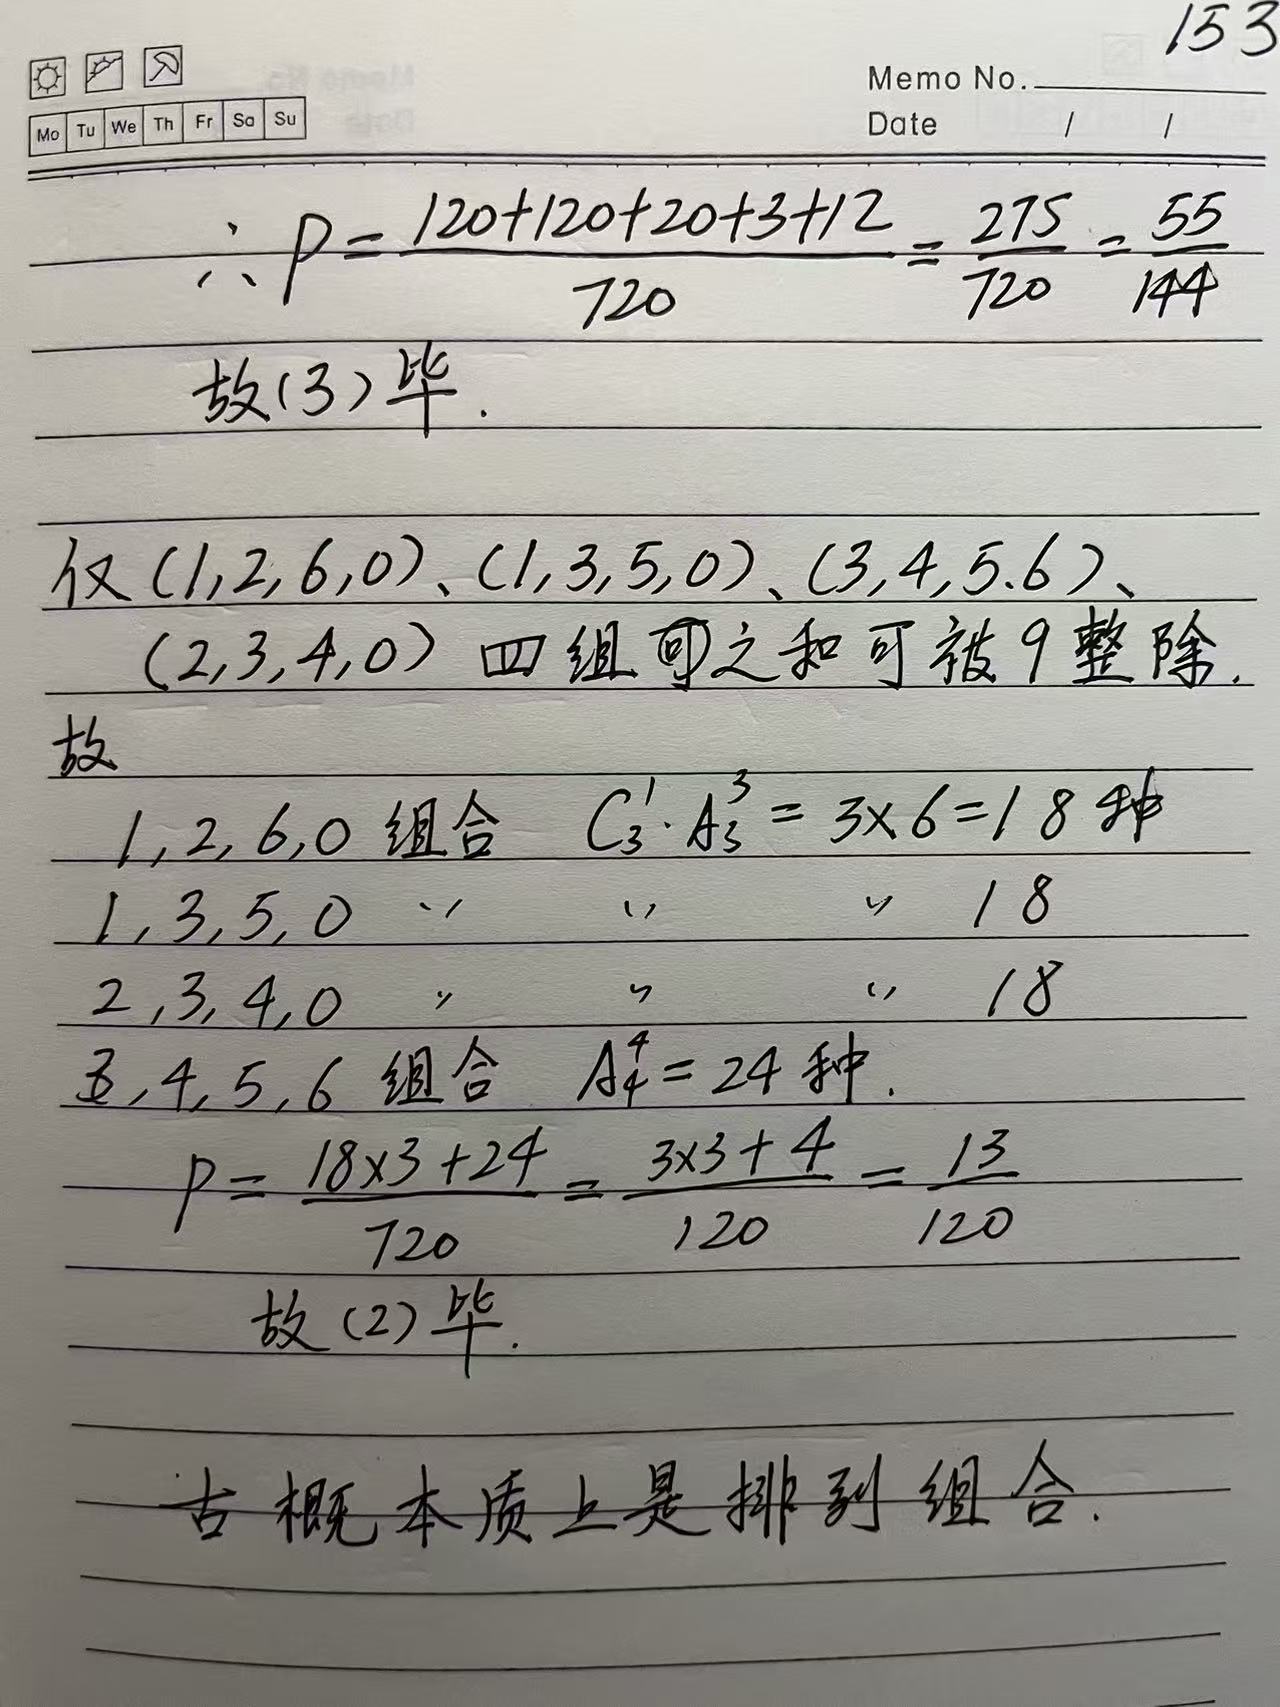 153
Memo No.
Mo Tu We Th Fr Sa Su
Date / /
∴ P = (120+120+20+3+12)/720 = 275/720 = 55/144
故(3)毕.
仅(1,2,6,0)、(1,3,5,0)、(3,4,5.6)、
(2,3,4,0) 四组之和可被9整除.
故
1,2,6,0 组合 C₃¹·A₃³ = 3×6=18种
1,3,5,0 〃 〃 〃 18
2,3,4,0 〃 〃 〃 18
3,4,5,6 组合 A₄⁴=24种.
P = (18×3+24)/720 = (3×3+4)/120 = 13/120
故(2)毕.
古概本质上是排列组合.